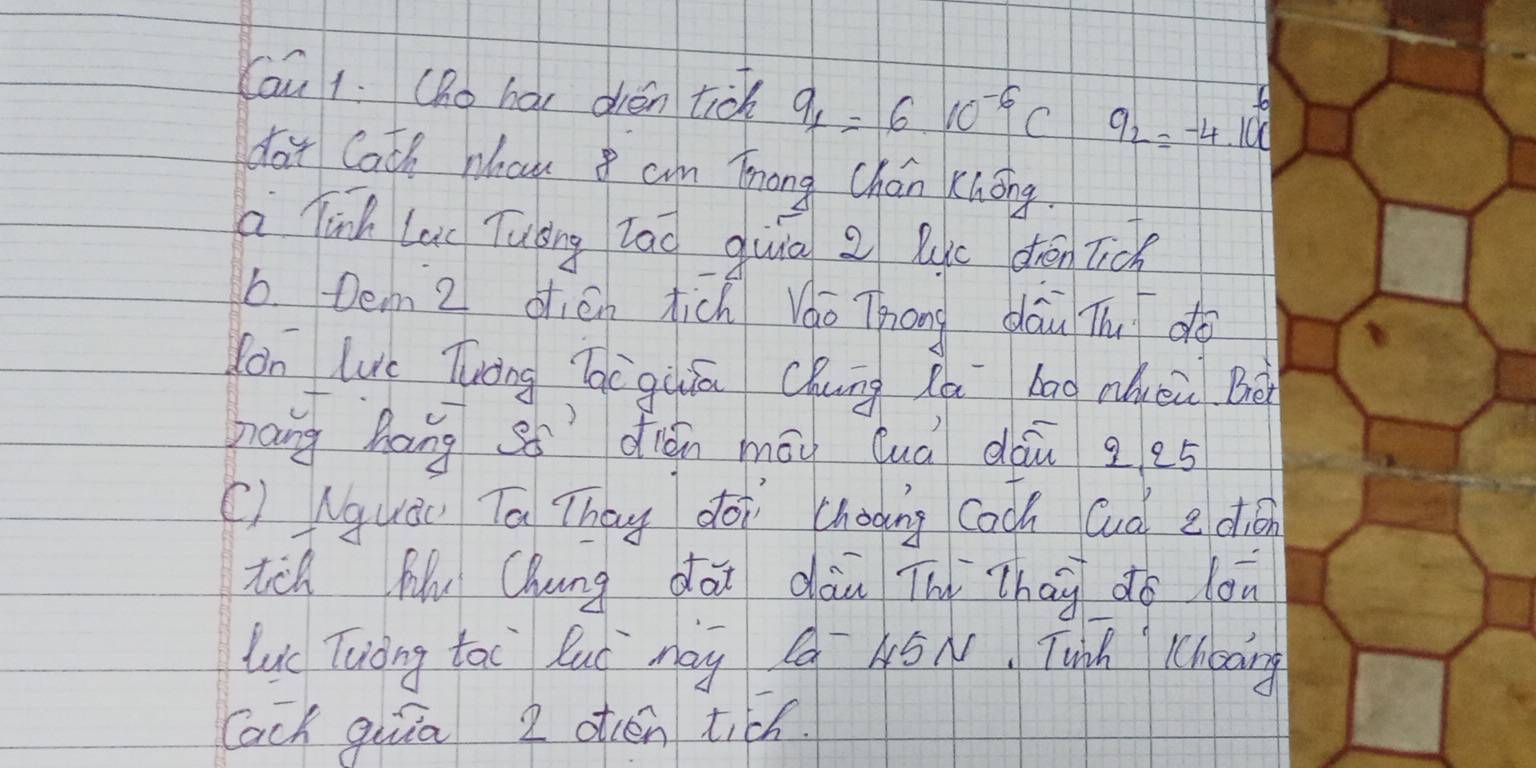 Câu 1: Cho hai điện tích q₁ = 6.10⁻⁶C q₂ = -4.10⁶C
đặt cách nhau 8 cm Trong chân không.
a Tính Lực Tương Tác giữa 2 lực điện Tích
b. Đem 2 điện tích Vào Trong dầu Thì độ
lớn lực Tương Tác giữa chúng là bao nhiêu. Biết
rằng hằng số điện môi của dầu 2,25
C) Người Ta Thay đổi khoảng cách của 2 điện
tích khi chúng đặt dầu Thì Thấy độ lớn
lực Tương tác lúc này là 45N. Tính khoảng
cách giữa 2 điện tích.